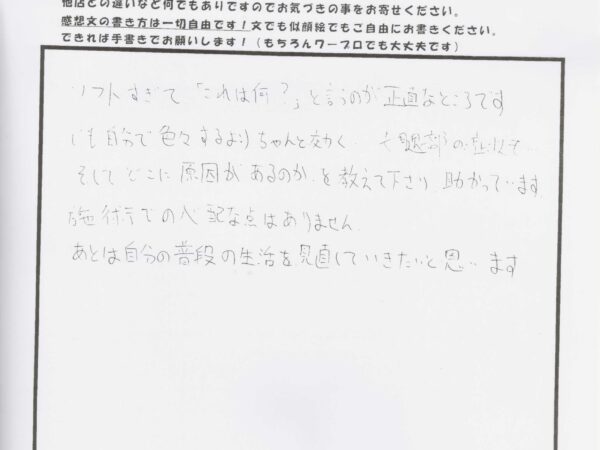 他店との違いなど何でもありですのでお気づきの事をお寄せください。
感想文の書き方は一切自由です！文でも似顔絵でもご自由にお書きください。
できれば手書きでお願いします！（もちろんワープロでも大丈夫です）
ソフトすぎて「これは何？」と言うのが正直なところです
でも自分で色々するよりちゃんと効く
そしてどこに原因があるのかを教えて下さり助かっています
施術での心配な点はありません.
あとは自分の普段の生活を見直していきたいと思います